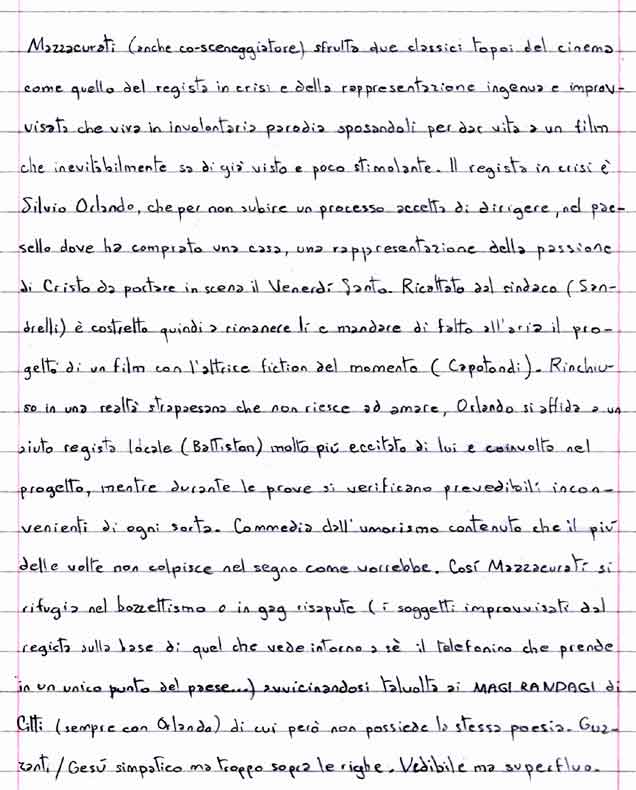 Mazzacurati (anche co-sceneggiatore) sfrutta due classici topoi del cinema
come quello del regista in crisi e della rappresentazione ingenua e improv-
visata che viva in involontaria parodia sposandoli per dar vita a un film
che inevitabilmente sa di già visto e poco stimolante. Il regista in crisi è
Silvio Orlando, che per non subire un processo accetta di dirigere, nel pae-
sello dove ha comprato una casa, una rappresentazione della passione
di Cristo da portare in scena il Venerdí Santo. Ricattato dal sindaco (San-
drelli) è costretto quindi a rimanere lí e mandare di fatto all'aria il pro-
getto di un film con l'attrice fiction del momento (Capotondi). Rinchiu-
so in una realtà strapaesana che non riesce ad amare, Orlando si affida a un
aiuto regista locale (Battiston) molto piú eccitato di lui e coinvolto nel
progetto, mentre durante le prove si verificano prevedibili incon-
venienti di ogni sorta. Commedia dall'umorismo contenuto che il piú
delle volte non colpisce nel segno come vorrebbe. Cosí Mazzacurati si
rifugia nel bozzettismo o in gag risapute (i soggetti improvvisati dal
regista sulla base di quel che vede intorno a sè il telefonino che prende
in un unico punto del paese...) avvicinandosi talvolta ai MAGI RANDAGI di
Citti (sempre con Orlando) di cui però non possiede la stessa poesia. Guz-
zanti/Gesú simpatico ma troppo sopra le righe. Vedibile ma superfluo.